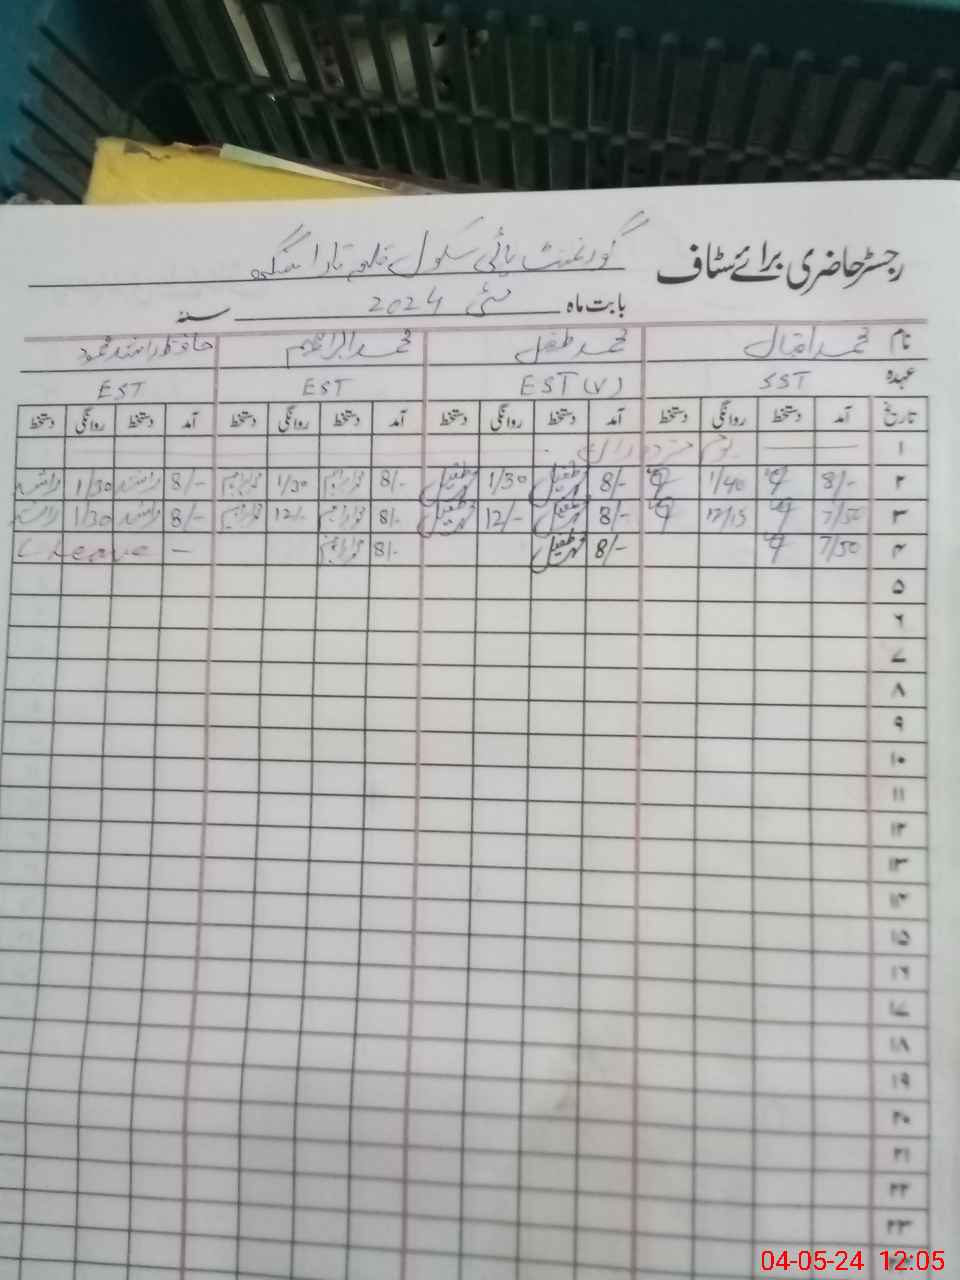 رجسٹر حاضری برائے سٹاف گورنمنٹ ہائی سکول قلعہ تارا سنگھ
بابت ماہ مئی 2024 سنہ
نام محمد اقبال محمد طفیل محمد ابراہیم حافظ راشد محمود
عہدہ SST EST (V) EST EST
تاریخ آمد دستخط روانگی دستخط آمد دستخط روانگی دستخط آمد دستخط روانگی دستخط آمد دستخط روانگی دستخط
۱ یوم مزدوراں
۲ 8/- 1/40 8/- طفیل 1/30 طفیل 8/- 1/30 8/- راشد 1/30 راشد
۳ 7/50 12/15 8/- محمد طفیل 12/- محمد طفیل 8/- 12/- 8/- راشد 1/30 راشد
۴ 7/50 8/- محمد طفیل 8/- — C Leave
۵
۶
۷
۸
۹
۱۰
۱۱
۱۲
۱۳
۱۴
۱۵
۱۶
۱۷
۱۸
۱۹
۲۰
۲۱
۲۲
۲۳
04-05-24 12:05